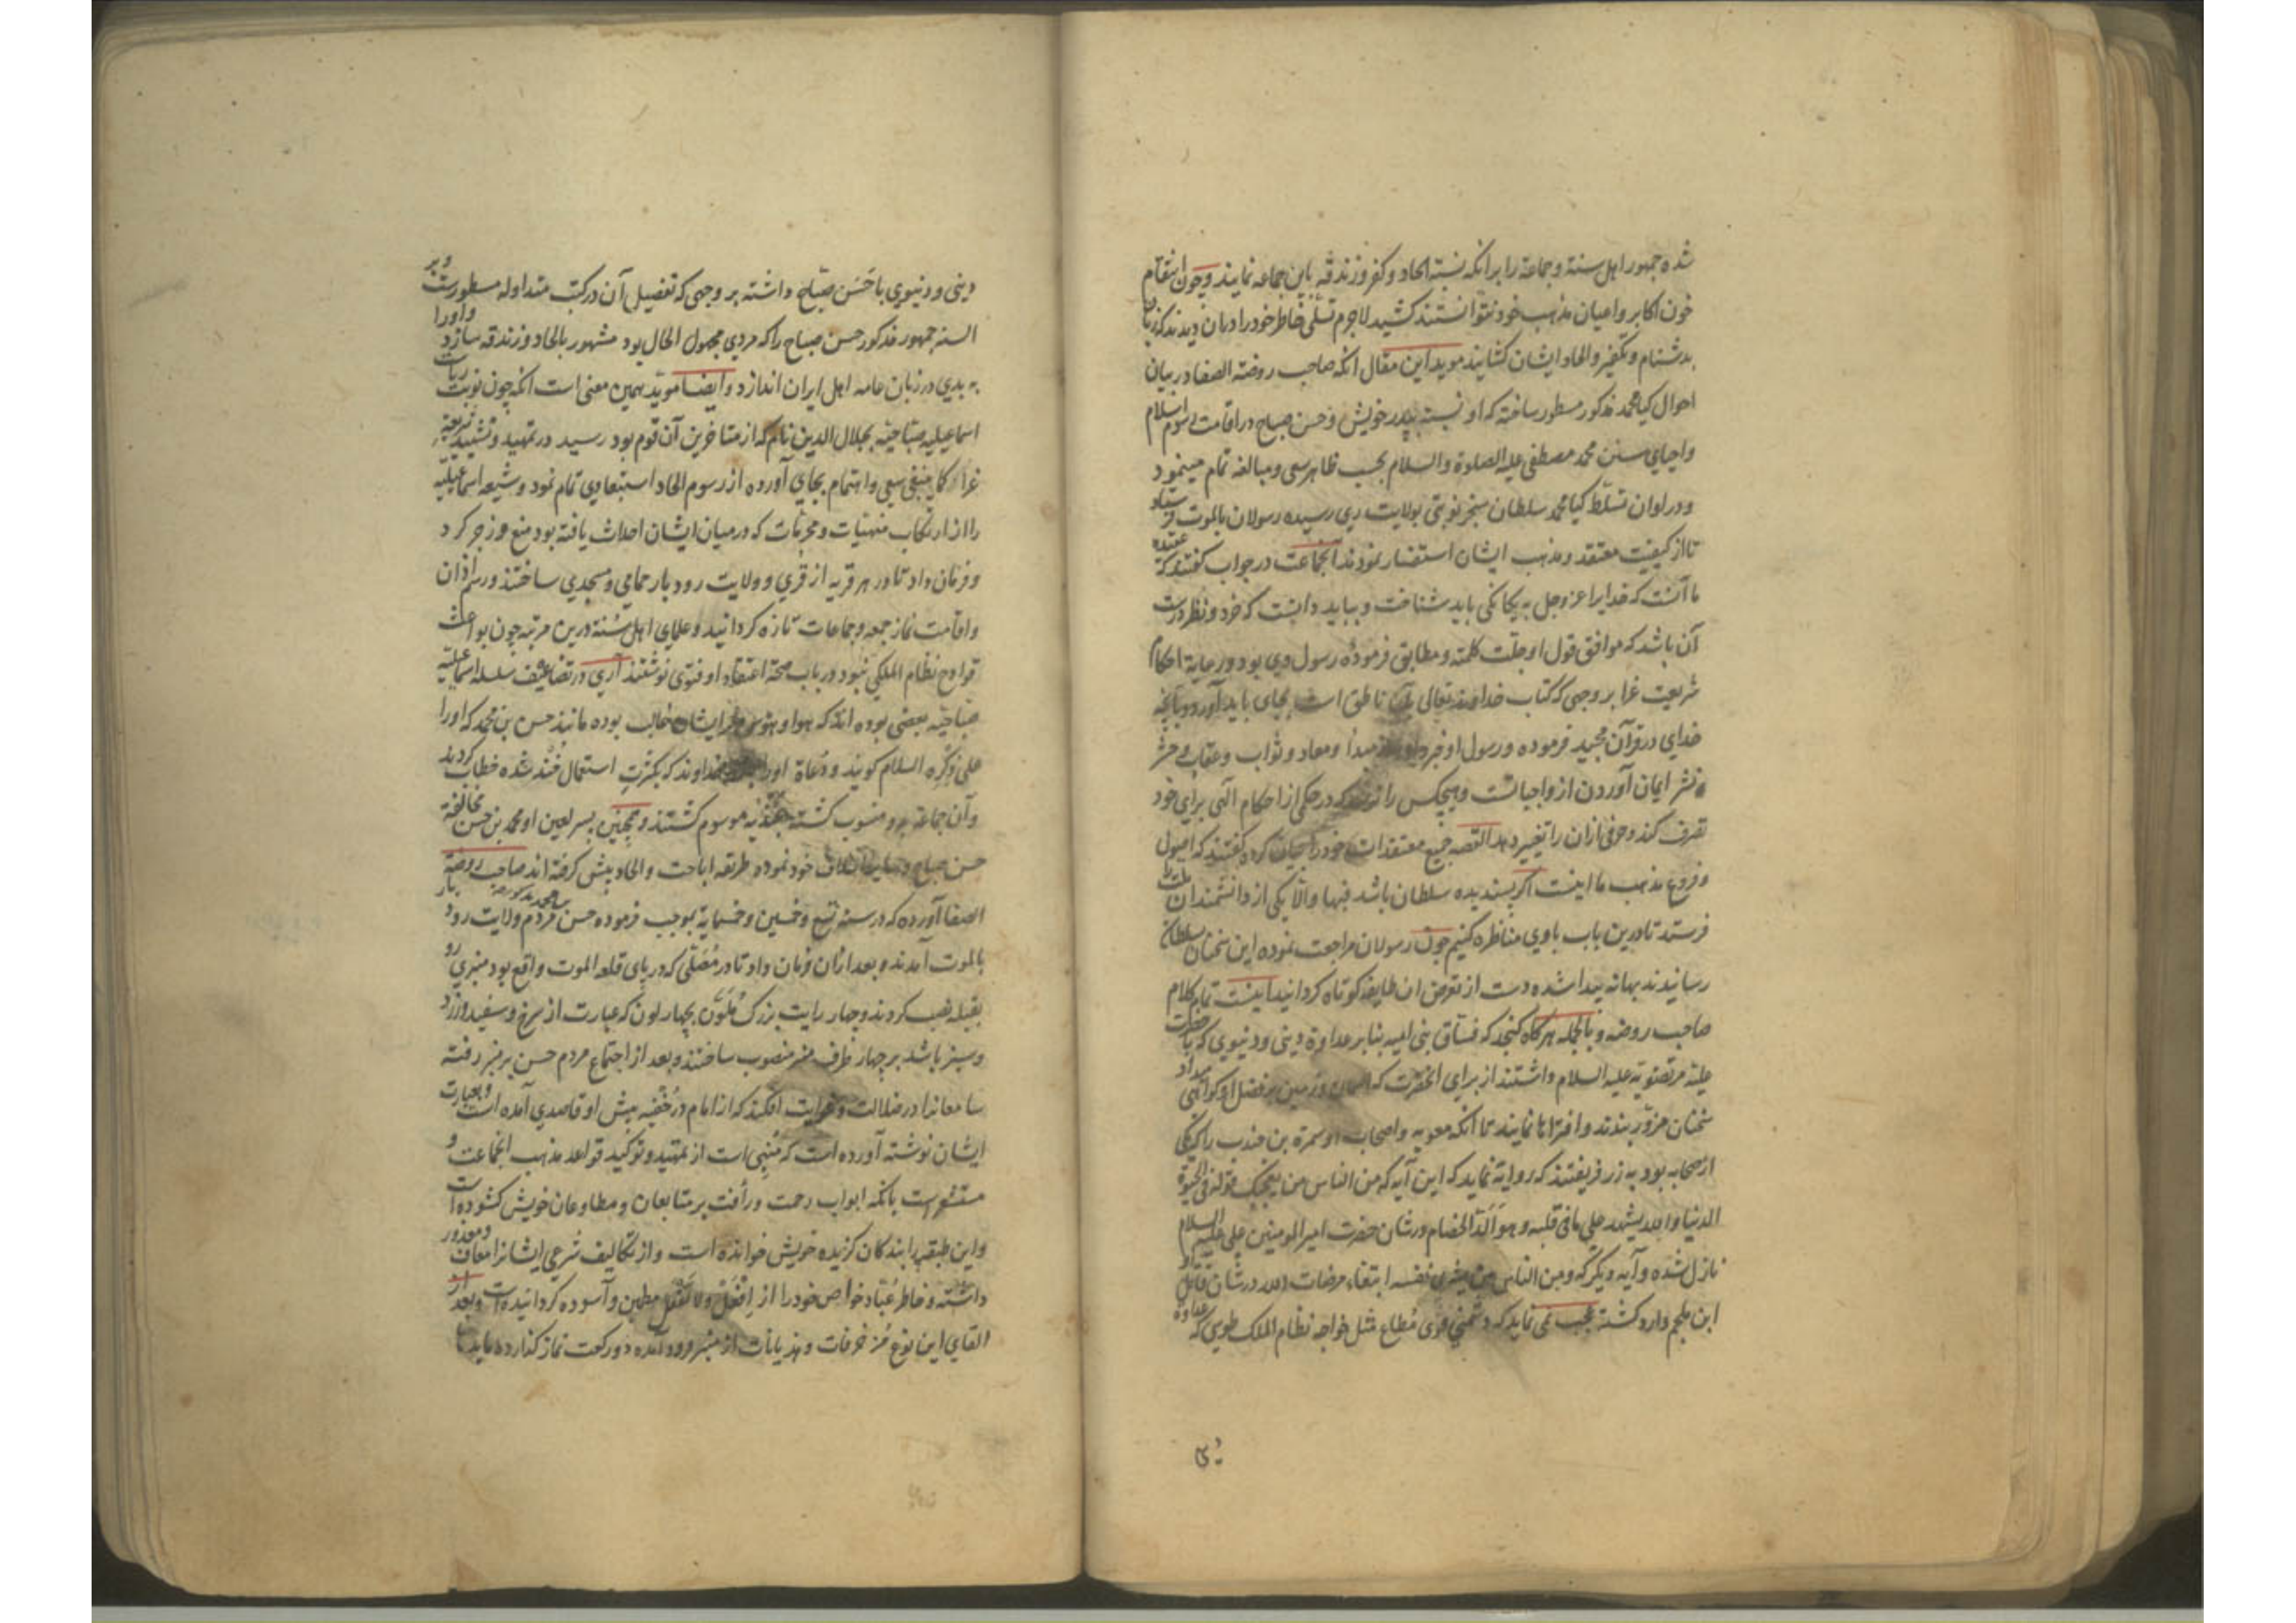 شده جمهور اهل سنة و جماعة را بر آنکه نسبة الحاد و کفر و زندقه باین جماعه نمایند و چون انتقام
خون اکابر و اعیان مذهب خود نتوانستند کشید لاجرم تشفّی خاطر خود را در آن دیدند که زبان
بدشنام و تکفیر و الحاد ایشان کشایند موید این مقال آنکه صاحب روضة الصفا در بیان
احوال کیا محمد مذکور مسطور ساخته که او نسبة بپدر خویش و حسن صباح در اقامت رسوم اسلام
و احیای سنن محمد مصطفی علیه الصلوة والسلام بحسب ظاهر سعی و مبالغه تمام مینمود
و در اوان تسلّط کیا محمد سلطان سنجر نوبتی بولایت ری رسیده رسولان بالموت فرستاد
تا از کیفیت معتقد و مذهب ایشان استفسار نمودند آنجماعت در جواب کفتند که عقیده
ما آنست که خدایرا عزوجل به یکانکی باید شناخت و بباید دانست که خرد و نظر درست
آن باشد که موافق قول او جلّت کلمته و مطابق فرموده رسول وی بود و رعایة احکام
شریعت غرا بر وجهی که کتاب خداوند تعالی بآن ناطق است بجای باید آورد و بآنچه
خدای در قرآن مجید فرموده و رسول او خبر داده از مبدأ و معاد و ثواب و عقاب و حشر
و نشر ایمان آوردن از واجباتست و هیچکس را نرسد که در حکمی از احکام الهی برای خود
تصرف کند و حرفی ازان را تغییر دهد القصه جمیع معتقدات خود را بیان کرده کفتند که اصول
و فروع مذهب ما اینست اکر پسندیده سلطان باشد فبها والّا یکی از دانشمندان ملت را
فرستد تا درین باب با وی مناظره کنیم چون رسولان مراجعت نموده این سخنان بسلطان
رسانیدند بهانه پیدا شده دست از تعرض ان طایفه کوتاه کردانید اینست تمام کلام
صاحب روضه و بالجمله هرکاه کنجد که فسّاق بنی امیه بنا بر عداوة دینی و دنیوی که با حضرت
علیّه مرتضویّه علیه السلام داشتند از برای آنحضرت که آسمان و زمین بر فضل او کواهی میداد
سخنان مزوّر بندند و افتراها نمایند تا آنکه معویه و اصحاب او سمرة بن جندب را که یکی
از صحابه بود به زر فریفتند که روایة نماید که این آیه که من الناس من یعجبک قوله فی الحیوة
الدنیا والله یشهد علی ما فی قلبه و هو اَلدّ الخصام در شان حضرت امیرالمومنین علی علیه السلام
نازل شده و آیه دیکر که و من الناس من یشری نفسه ابتغاء مرضات الله در شان قاتل او
ابن ملجم وارد کشته عجب نمی نماید که دشمنی قوی مُطاع مثل خواجه نظام الملک طوسی که عداوة
دینی و دنیوی با حَسَن صبّاح داشته بر وجهی که تفصیل آن در کتب متداوله مسطورست و بر
السنه جمهور مذکور حسن صباح را که مردی مجهول الحال بود مشهور بالحاد و زندقه سازد و او را
به بدی در زبان عامه اهل ایران اندازد و ایضا موید همین معنی است آنکه چون نوبت ریاست
اسماعیلیه صبّاحیّه بجلال الدین نام که از متاخرین آن قوم بود رسید در تمهید و تشیید شریعة
غرّا کما ینبغی سعی و اهتمام بجای آورده از رسوم الحاد استبعادی تمام نمود و شیعه اسماعیلیّه
را از ارتکاب منهیّات و محرمات که در میان ایشان احداث یافته بود منع و زجر کرد
و فرمان داد تا در هر قریه از قری و ولایت رودبار حمامی و مسجدی ساختند و رسم اذان
و اقامت نماز جمعه و جماعات تازه کردانید و علمای اهل سُنّة درین مرتبه چون بواعث
قوادح نظام الملکی نبود در باب صحة اعتقاد او فتوی نوشتند آری در تضاعیف سلسله اسماعیلیّه
صبّاحیّه بعضی بوده اند که هوا و هوس بر ایشان غالب بوده مانند حسن بن محمد که اورا
علی ذِکْره السلام کویند و دُعاة اورا خداوند که بکثرت استعمال خُنْد شده خطاب کردند
و آن جماعة برو منسوب کشته بخُنْدیّه موسوم کشتند و همچنین پسر لعین او محمد بن حسن مخالفة
حسن صباح و سایر اسلاف خود نموده طریقه اباحت و الحاد پیش کرفته اند صاحب روضة
الصفا آورده که در سنه تسع و خمسین و خمسمایه بموجب فرموده حسن مردم ولایت رودبار
بن محمد مذکور
بالموت آمدند و بعد ازان فرمان داد تا در مُصَلّی که در پای قلعه الموت واقع بود منبری رو
بقبله نصب کردند و چهار رایت بزرک مُلوّن بچهار لون که عبارت از سرخ و سفید و زرد
و سبز باشد بر چهار طرف منبر منصوب ساختند و بعد از اجتماع مردم حسن بر منبر رفته
سامعانرا در ضلالت و غوایت افکند که از امام در خُفْیه پیش او قاصدی آمده است و بعبارت
ایشان نوشته آورده است که مُنْبِی است از تمهید و توکید قواعد مذهب انجماعت و
مستشعرست بآنکه ابواب رحمت و رأفت بر متابعان و مطاوعان خویش کشوده است
و این طبقه را بندکان کزیده خویش خوانده است و از تکالیف شرعی ایشانرا معاف و معذور
داشته و خاطر عُبّاد خواص خود را از اِفْعَل و لا تَفْعَل مطمین و آسوده کردانیده است و بعد از
القای این نوع مُزخرفات و هذیانات از منبر فرود آمده دو رکعت نماز کذارده